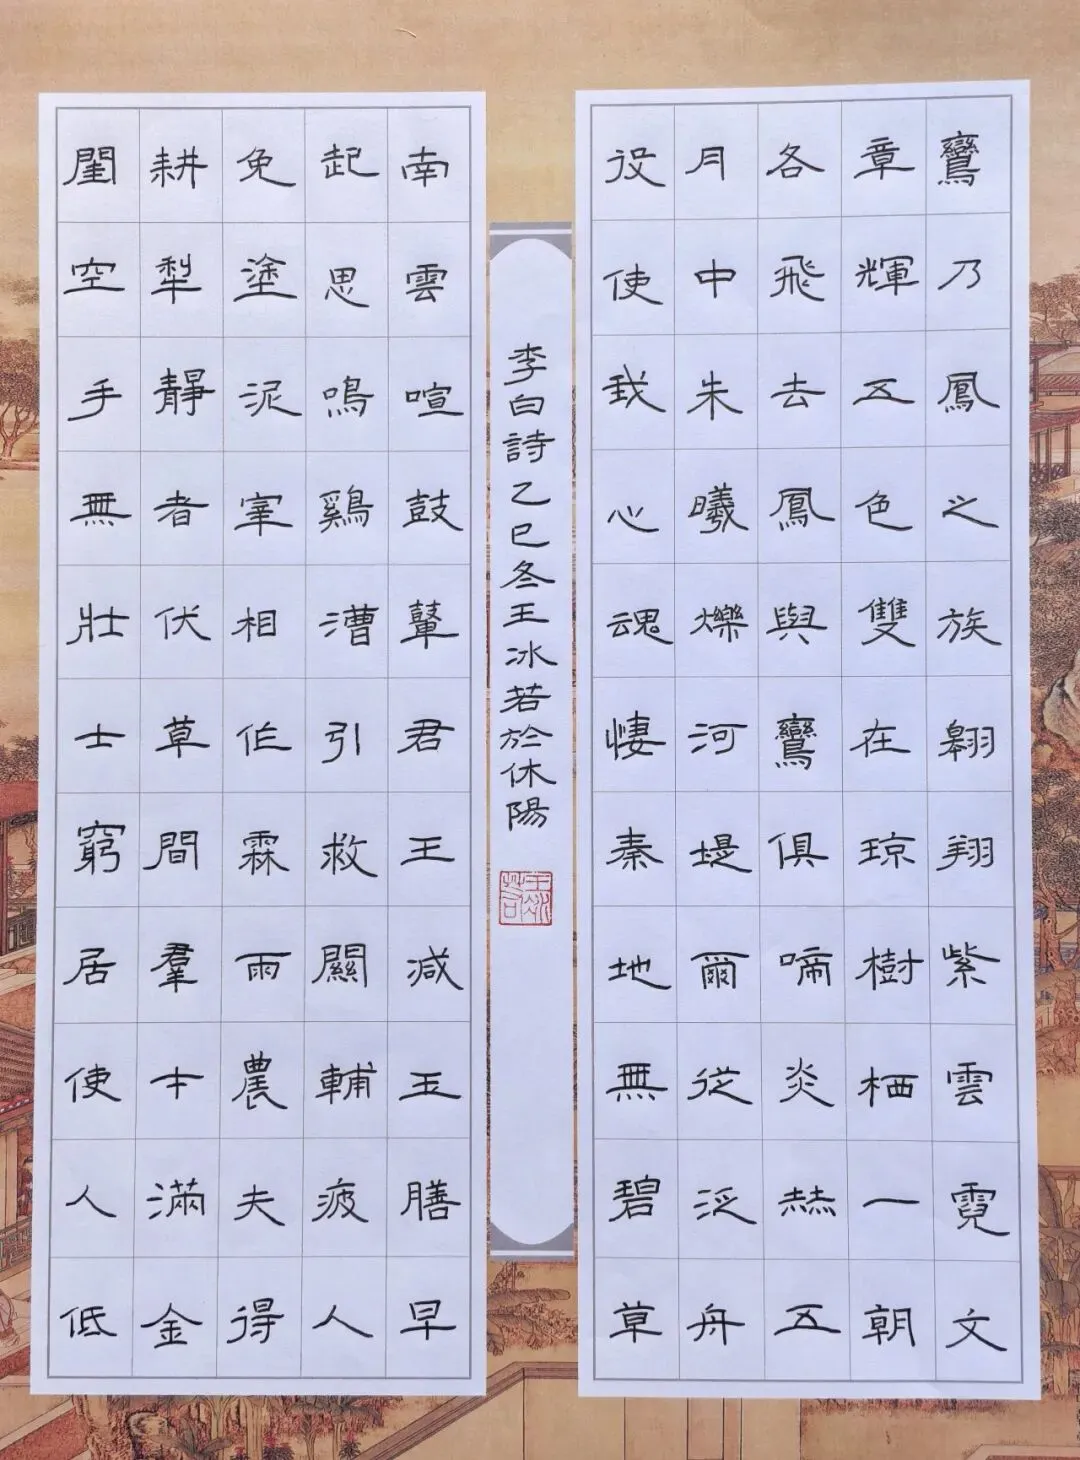 鸞乃鳳之族翱翔紫雲霓文
章輝五色雙在琼樹栖一朝
各飛去鳳與鸞俱啼炎赫五
月中朱曦爍河堤爾從泛舟
役使我心魂悽秦地無碧草
南雲喧鼓鼙君王減玉膳早
起思鳴鷄漕引救關輔疲人
免塗泥宰相作霖雨農夫得
耕犁靜者伏草間羣才滿金
閨空手無壯士窮居使人低
李白詩乙巳冬王冰若於休陽
王冰若